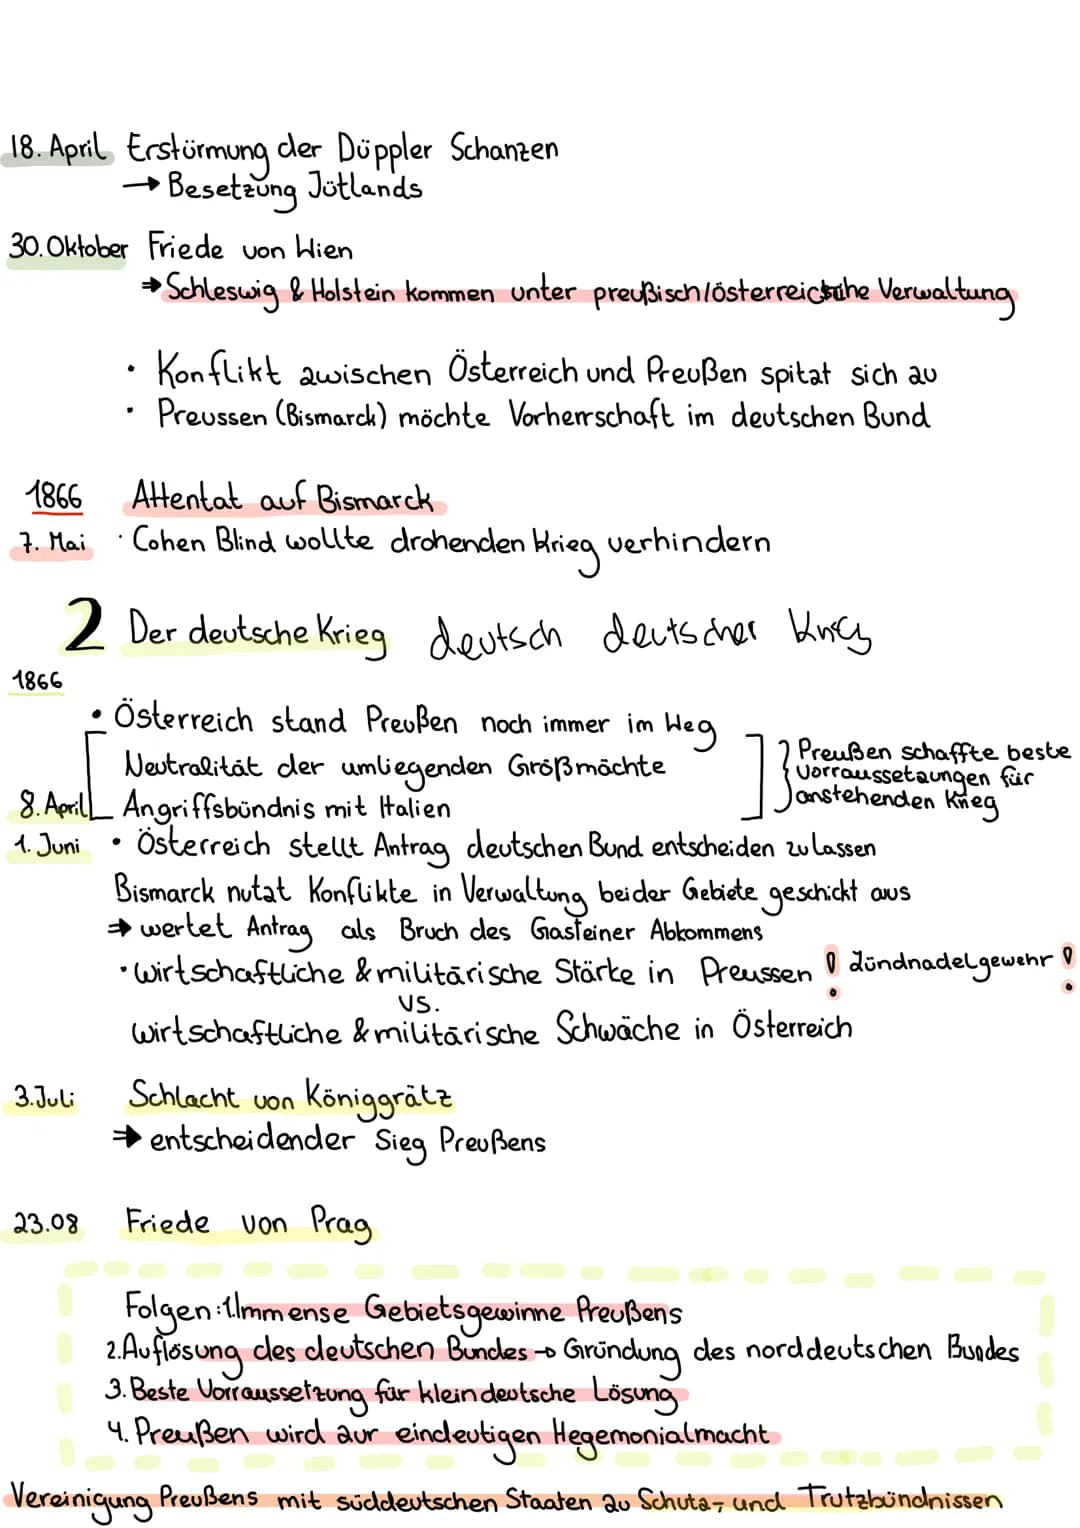 18. April Erstürmung der Düppler Schanzen
→ Besetzung Jütlands
30. Oktober Friede von Wien
⇒ Schleswig & Holstein kommen unter preußisch/österreichische Verwaltung
· Konflikt zwischen Österreich und Preußen spitzt sich zu
· Preussen (Bismarck) möchte Vorherrschaft im deutschen Bund
1866 Attentat auf Bismarck
7. Mai · Cohen Blind wollte drohenden Krieg verhindern
2 Der deutsche Krieg deutsch deutscher Krieg
1866
• Österreich stand Preußen noch immer im Weg
Neutralität der umliegenden Großmächte
8. April Angriffsbündnis mit Italien
Preußen schaffte beste
Vorraussetzungen für
anstehenden Krieg
1. Juni • Österreich stellt Antrag deutschen Bund entscheiden zu lassen
Bismarck nutzt Konflikte in Verwaltung beider Gebiete geschickt aus
⇒ wertet Antrag als Bruch des Gasteiner Abkommens
· wirtschaftliche & militärische Stärke in Preussen ! Zündnadelgewehr !
vs.
wirtschaftliche & militärische Schwäche in Österreich
3. Juli Schlacht von Königgrätz
⇒ entscheidender Sieg Preußens
23.08 Friede von Prag
Folgen: 1. Immense Gebietsgewinne Preußens
2. Auflösung des deutschen Bundes → Gründung des norddeutschen Bundes
3. Beste Vorraussetzung für kleindeutsche Lösung
4. Preußen wird zur eindeutigen Hegemonialmacht
Vereinigung Preußens mit süddeutschen Staaten zu Schutz- und Trutzbündnissen